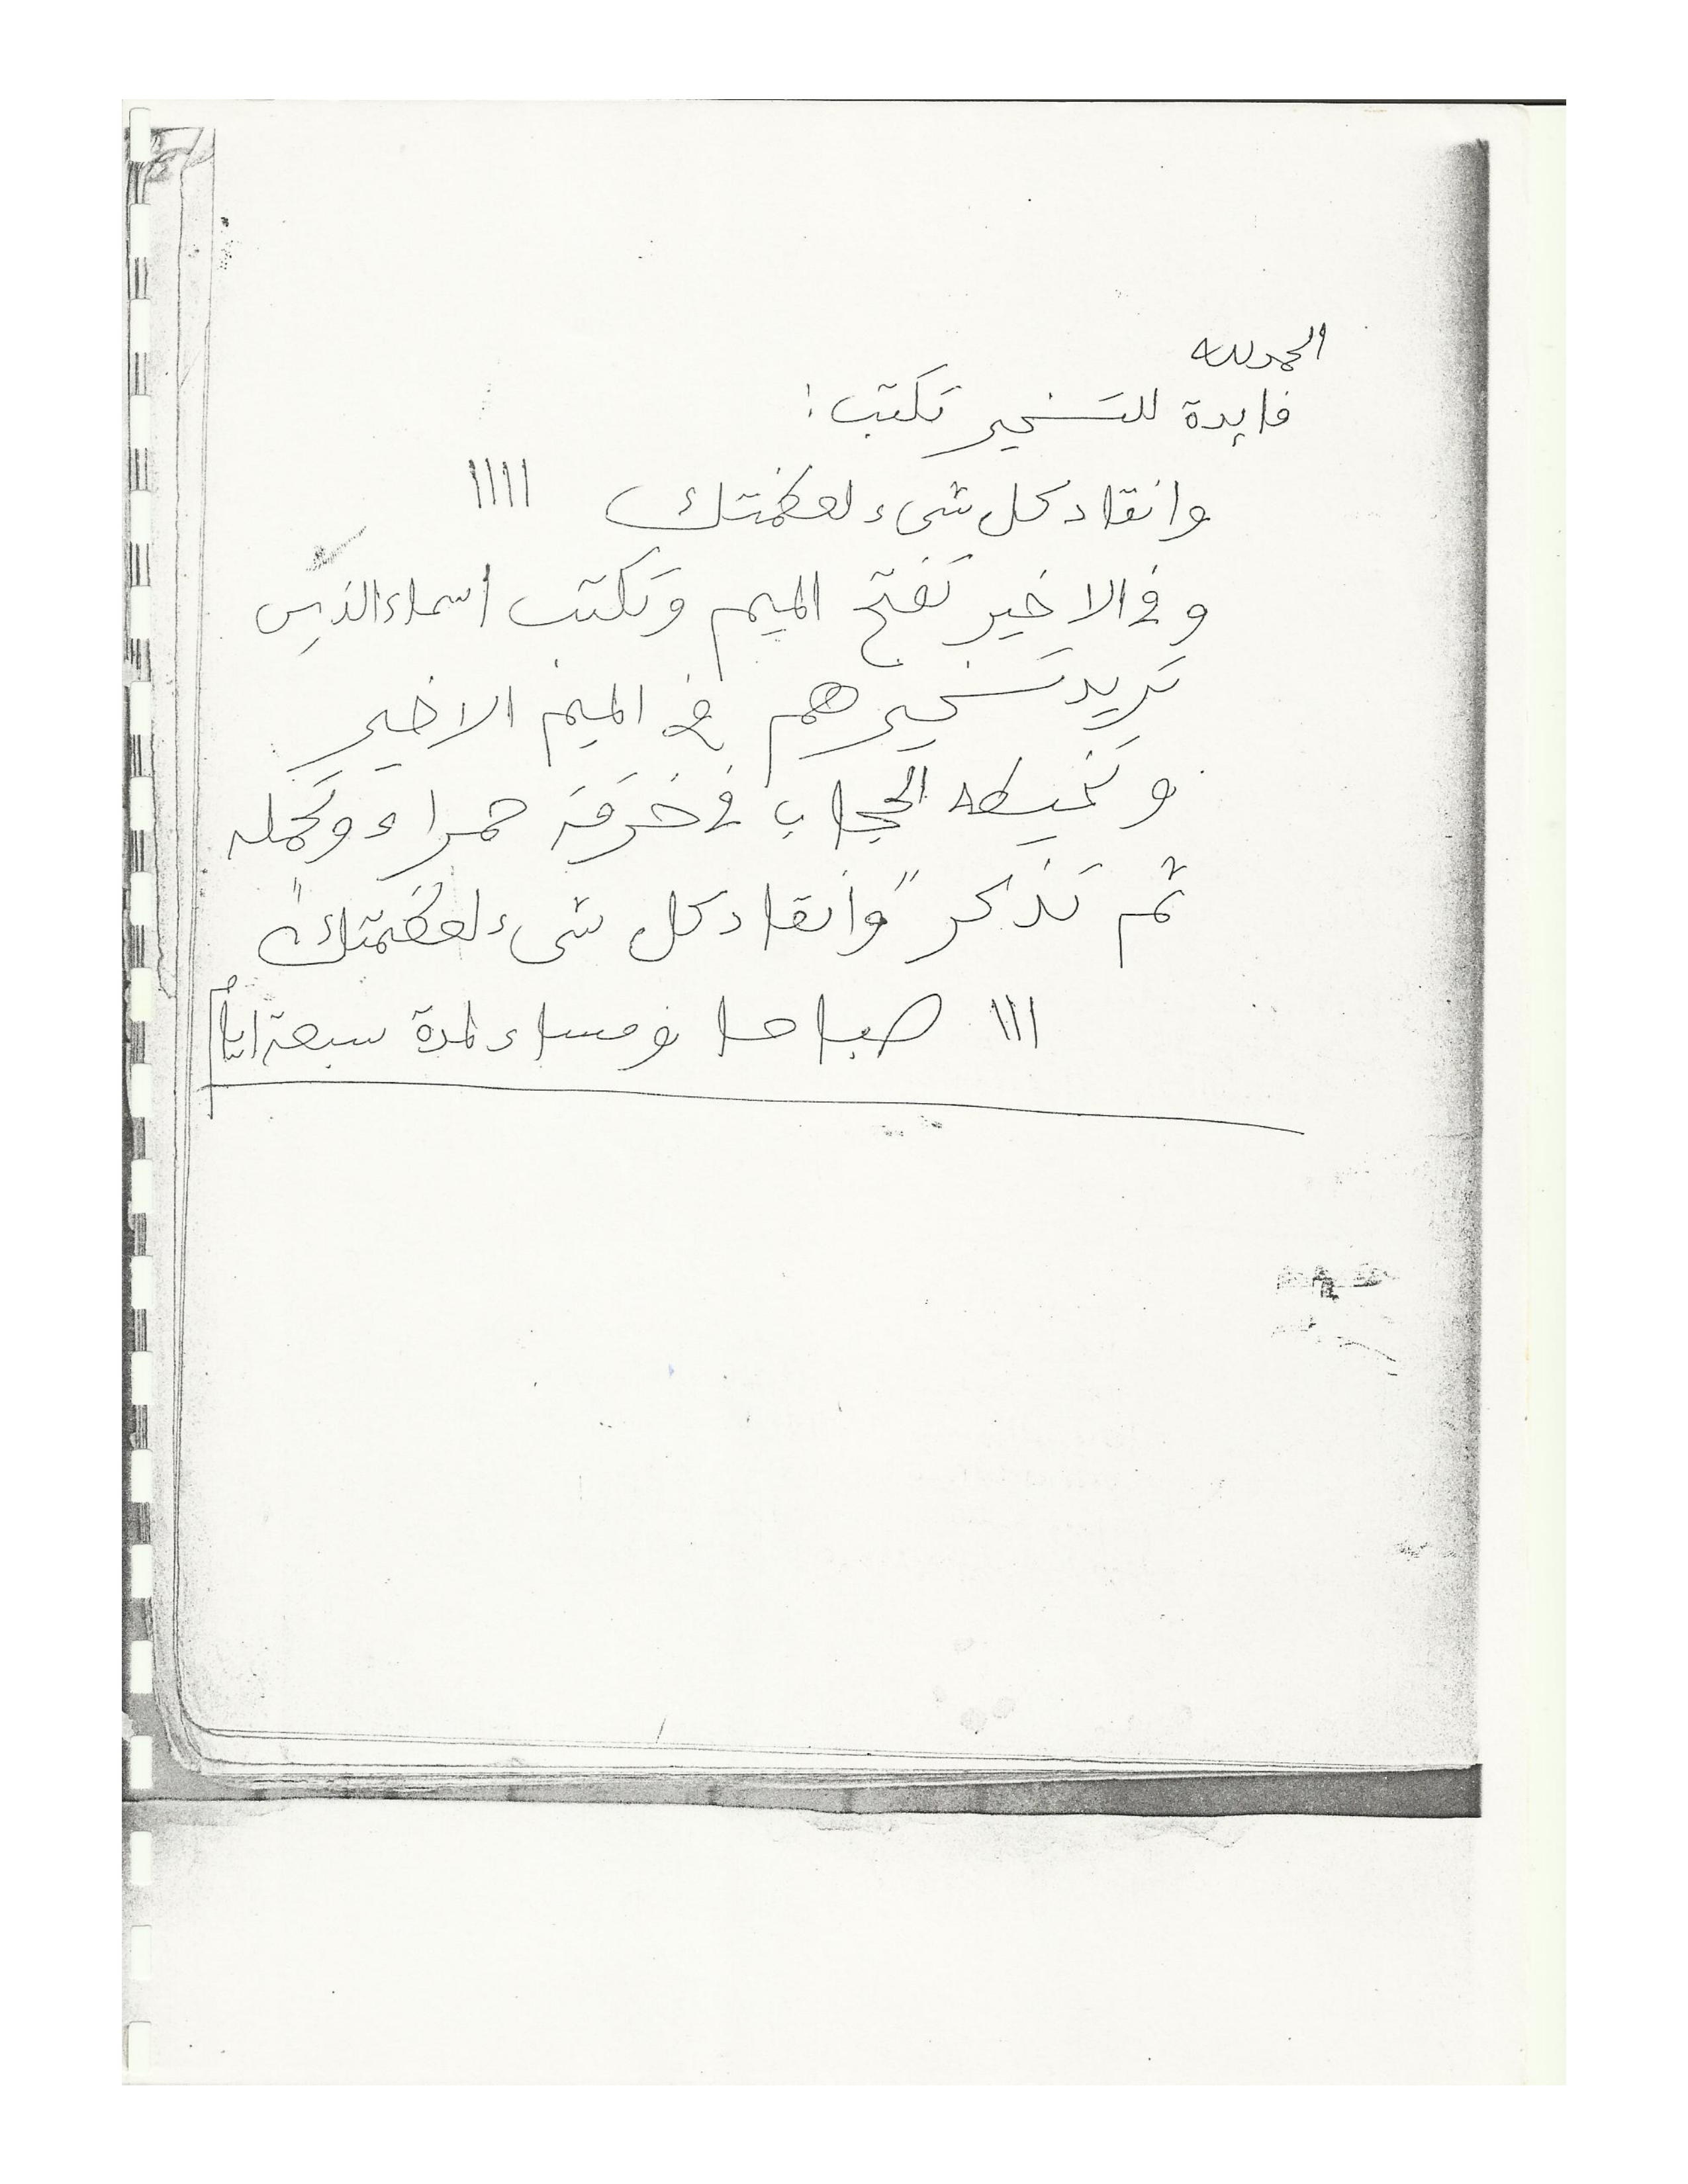 الحمد لله
فايدة للتسخير تكتب :
وانقاد كل شىء لعظمتك ١١١١
و في الاخير تفتح الميم وتكتب أسماء الذين
تريد تسخيرهم في الميم الاخير
و تخيطه الحجاب في خرقة حمراء وتحمله
ثم تذكر "وأنقاد كل شىء لعظمتك"
١١١ صباحا ومساء لمدة سبعة ايام